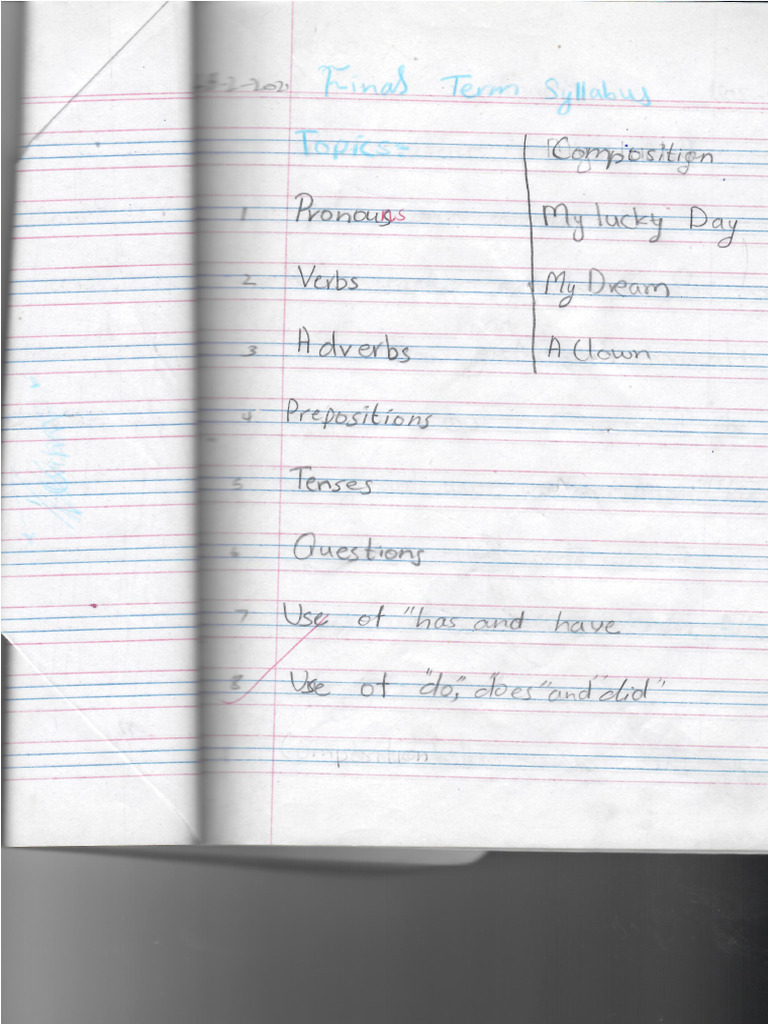 Final Term Syllabus
Topics- Composition
1 Pronouns My lucky Day
2 Verbs My Dream
3 Adverbs A Clown
4 Prepositions
5 Tenses
6 Questions
7 Use of "has and have
8 Use of "do," "does" and "did"
Composition